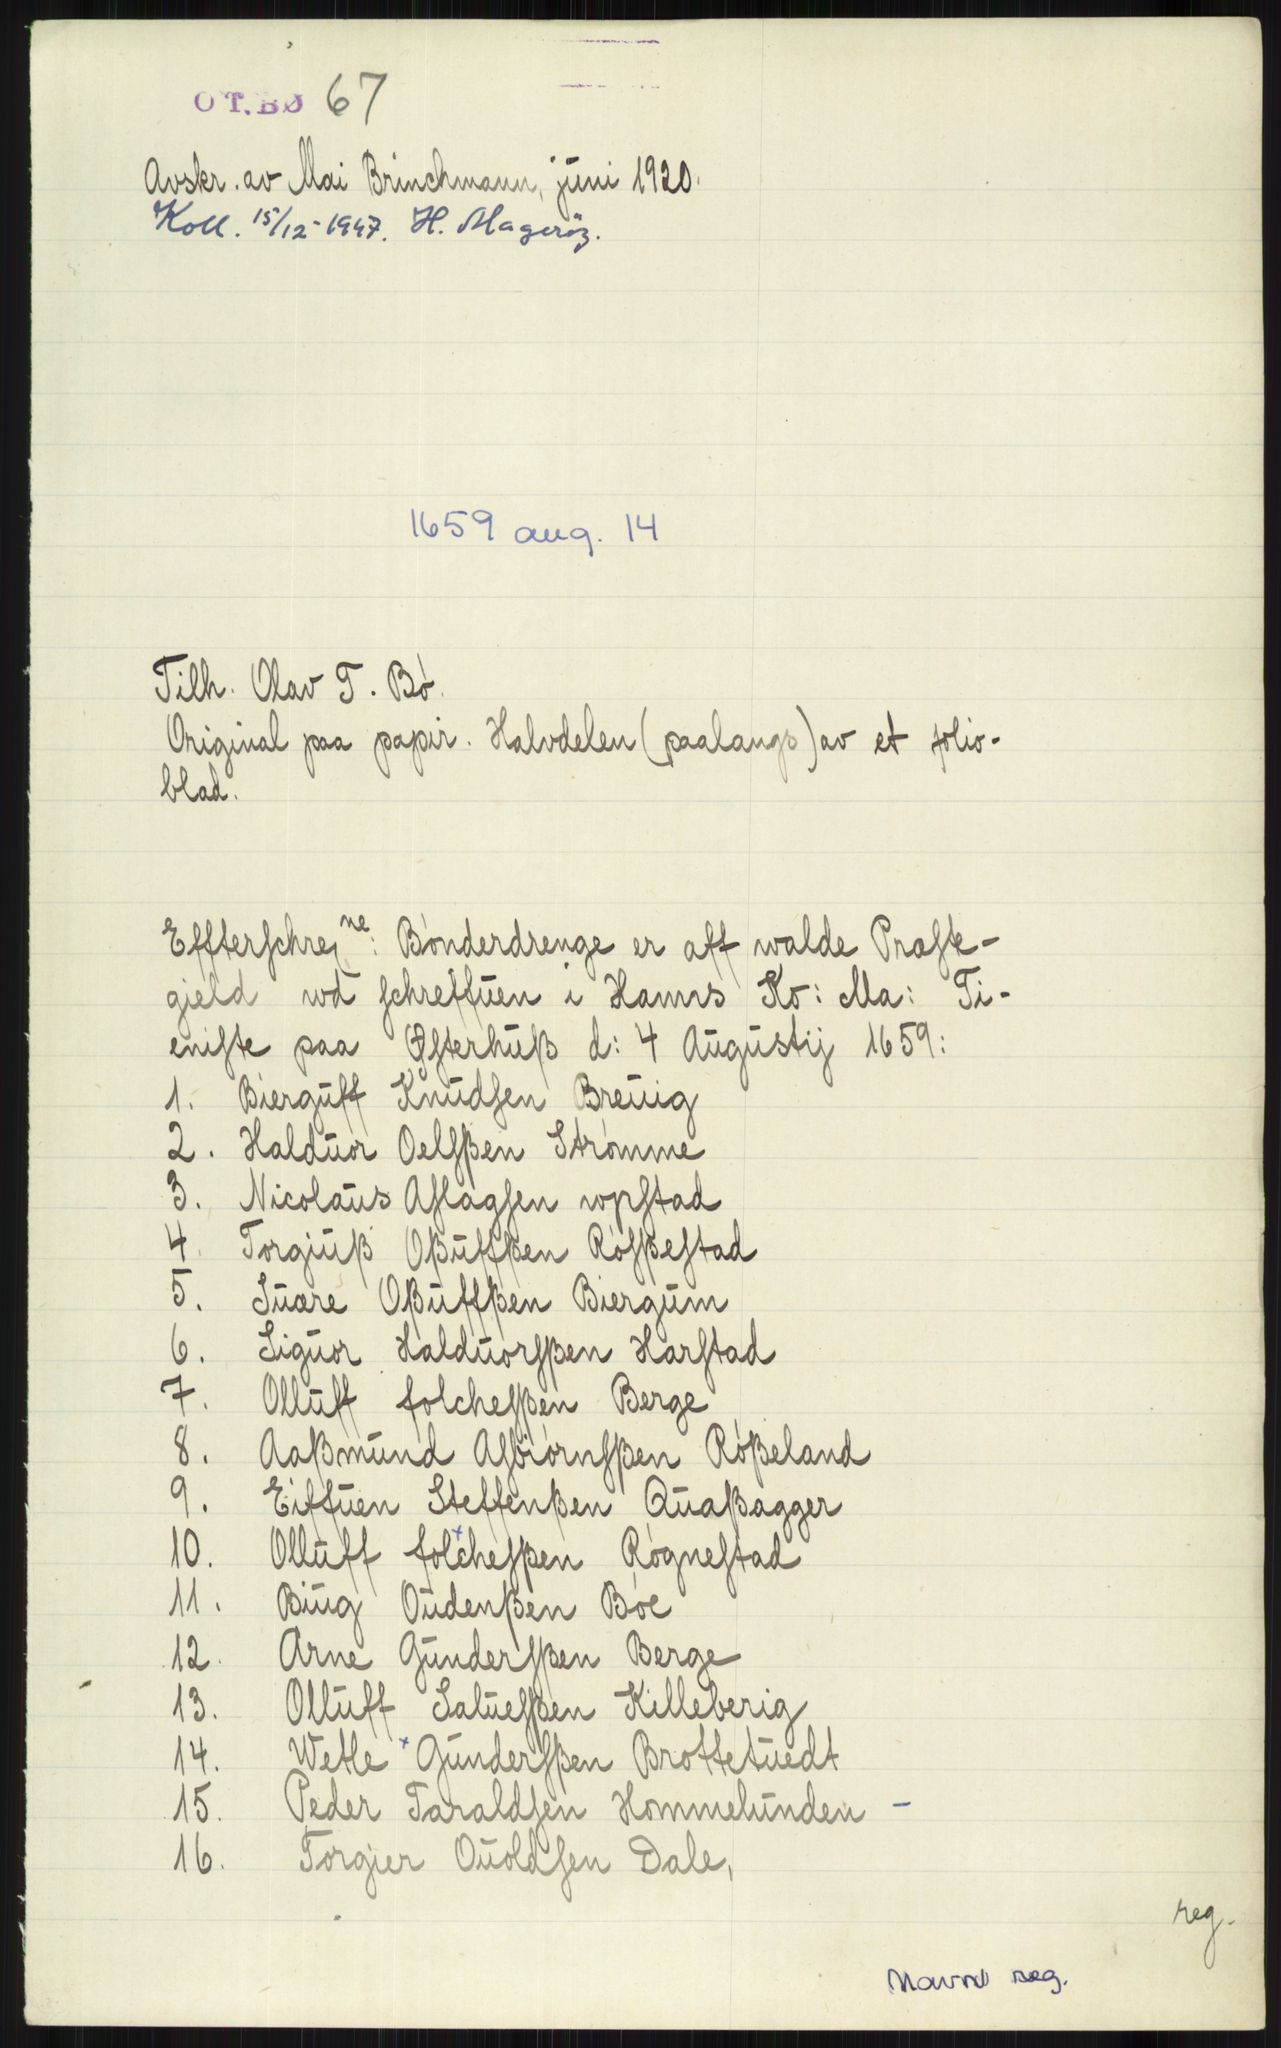 O T. BØ 67
Avskr. av Mai Brinchmann, juni 1920.
Koll. 15/12-1947. H. Magerøy.
1659 aug. 14
Tilh. Olav T. Bø.
Original paa papir. Halvdelen (paalangs) av et folio-
blad.
Effterſchreͫne: Bønderdrenge er aff walde Præſte-
gield wd ſchreffuen i Hanns Ko: Ma: Ti-
eniſte paa Aggerhuß d: 4 Augustij 1659:
1. Bierguff Knudſen Breuig
2. Halduor Oelſßen Strømme
3. Nicolaus Aſlagſen wpſtad
4. Torgiuß Oßuffßen Røſßeſtad
5. Suære Oßuffßen Biergum
6. Siguor Halduorſßen Harſtad
7. Olluff folcheſßen Berge
8. Aaßmund Aſbiørnſßen Røßeland
9. Eiffuen Steffenßen Quaßagger
10. Olluff folcheſßen Røgneſtad
11. Biug Oudenßen Bøe
12. Arne Gunderſßen Berge
13. Olluff Salueſßen Killeberig
14. Wetle Gunderſßen Brottetuedt
15. Peder Taraldſen Hommelunden -
16. Torgier Ouoldſen Dale,
reg.
Navne reg.